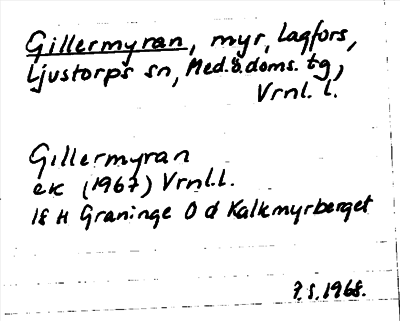 Gillermyran, myr, Lagfors,
Ljustorps sn, Med.ö.doms. tg,
Vrnl. l.
Gillermyran
ek (1967) Vrnl.l.
18 H Graninge O d Kalkmyrberget
P.S.1968.